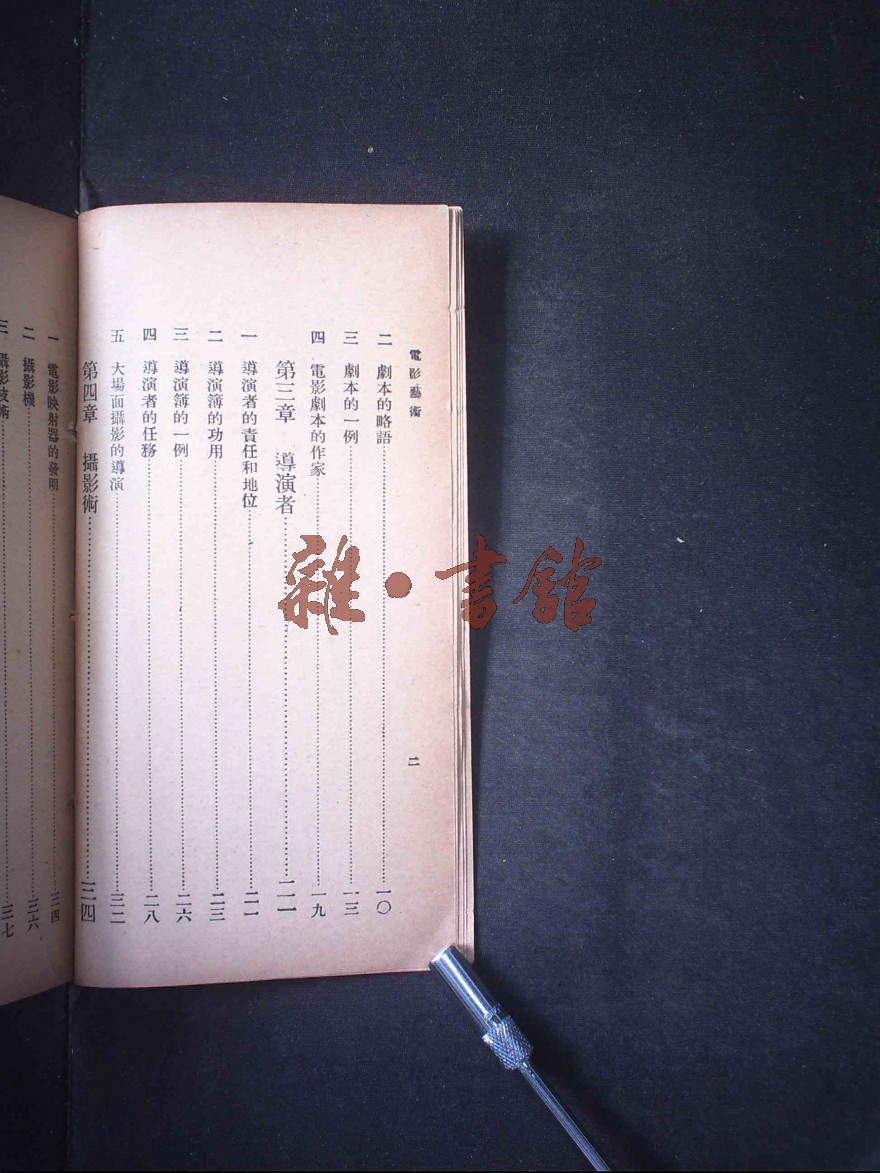 電影藝術
二
二 劇本的略語 一〇
三 劇本的一例 一三
四 電影劇本的作家 一九
第三章 導演者 二一
一 導演者的責任和地位 二一
二 導演簿的功用 二三
三 導演簿的一例 二六
四 導演者的任務 二八
五 大場面攝影的導演 三二
第四章 攝影術 三四
一 電影映射器的發明 三四
二 攝影機 三六
三 攝影技術 三七
雜·書館